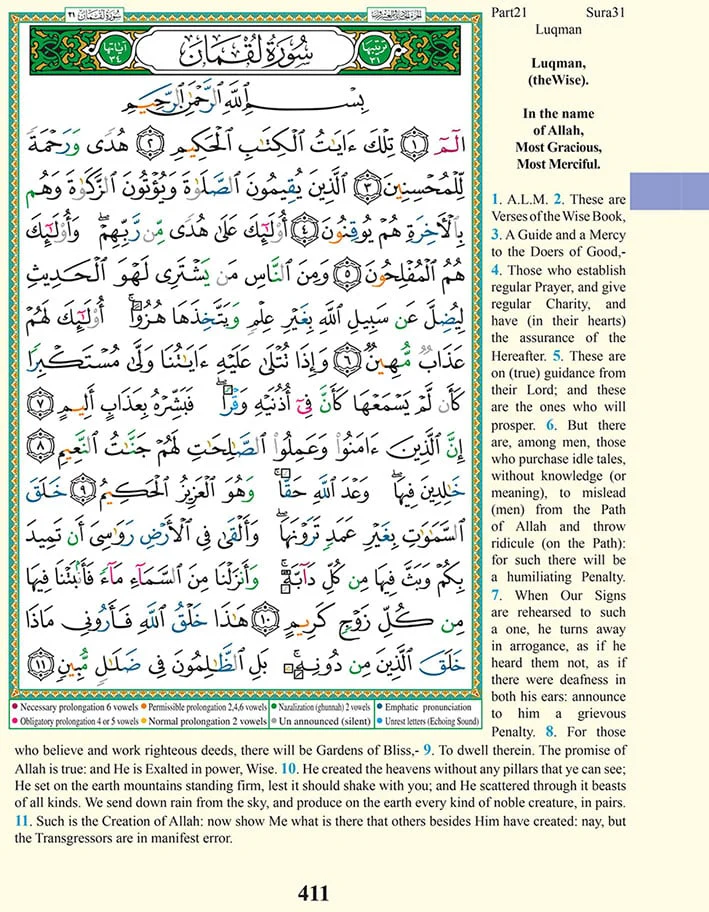 سُورَةُ لُقْمَان ٣١
الجزء الحادي والعشرون
Part21 Sura31
Luqman
Luqman,
(theWise).
In the name
of Allah,
Most Gracious,
Most Merciful.
آياتها ٣٤
سُورَةُ لُقْمَانَ
ترتيبها ٣١
بِسْمِ ٱللَّهِ ٱلرَّحْمَٰنِ ٱلرَّحِيمِ
الٓمٓ ١ تِلْكَ ءَايَٰتُ ٱلْكِتَٰبِ ٱلْحَكِيمِ ٢ هُدًى وَرَحْمَةً
لِّلْمُحْسِنِينَ ٣ ٱلَّذِينَ يُقِيمُونَ ٱلصَّلَوٰةَ وَيُؤْتُونَ ٱلزَّكَوٰةَ وَهُم
بِٱلْأَخِرَةِ هُمْ يُوقِنُونَ ٤ أُو۟لَٰٓئِكَ عَلَىٰ هُدًى مِّن رَّبِّهِمْ ۖ وَأُو۟لَٰٓئِكَ
هُمُ ٱلْمُفْلِحُونَ ٥ وَمِنَ ٱلنَّاسِ مَن يَشْتَرِى لَهْوَ ٱلْحَدِيثِ
لِيُضِلَّ عَن سَبِيلِ ٱللَّهِ بِغَيْرِ عِلْمٍ وَيَتَّخِذَهَا هُزُوًا ۚ أُو۟لَٰٓئِكَ لَهُمْ
عَذَابٌ مُّهِينٌ ٦ وَإِذَا تُتْلَىٰ عَلَيْهِ ءَايَٰتُنَا وَلَّىٰ مُسْتَكْبِرًا
كَأَن لَّمْ يَسْمَعْهَا كَأَنَّ فِىٓ أُذُنَيْهِ وَقْرًا ۖ فَبَشِّرْهُ بِعَذَابٍ أَلِيمٍ ٧
إِنَّ ٱلَّذِينَ ءَامَنُوا۟ وَعَمِلُوا۟ ٱلصَّٰلِحَٰتِ لَهُمْ جَنَّٰتُ ٱلنَّعِيمِ ٨
خَٰلِدِينَ فِيهَا ۖ وَعْدَ ٱللَّهِ حَقًّا ۚ وَهُوَ ٱلْعَزِيزُ ٱلْحَكِيمُ ٩ خَلَقَ
ٱلسَّمَٰوَٰتِ بِغَيْرِ عَمَدٍ تَرَوْنَهَا ۖ وَأَلْقَىٰ فِى ٱلْأَرْضِ رَوَٰسِىَ أَن تَمِيدَ
بِكُمْ وَبَثَّ فِيهَا مِن كُلِّ دَآبَّةٍ ۚ وَأَنزَلْنَا مِنَ ٱلسَّمَآءِ مَآءً فَأَنۢبَتْنَا فِيهَا
مِن كُلِّ زَوْجٍ كَرِيمٍ ١٠ هَٰذَا خَلْقُ ٱللَّهِ فَأَرُونِى مَاذَا
خَلَقَ ٱلَّذِينَ مِن دُونِهِۦ ۚ بَلِ ٱلظَّٰلِمُونَ فِى ضَلَٰلٍ مُّبِينٍ ١١
Necessary prolongation 6 vowels Permissible prolongation 2,4,6 vowels Nazalization (ghunnah) 2 vowels Emphatic pronunciation
Obligatory prolongation 4 or 5 vowels Normal prolongation 2 vowels Un announced (silent) Unrest letters (Echoing Sound)
1. A.L.M. 2. These are
Verses of the Wise Book,
3. A Guide and a Mercy
to the Doers of Good,-
4. Those who establish
regular Prayer, and give
regular Charity, and
have (in their hearts)
the assurance of the
Hereafter. 5. These are
on (true) guidance from
their Lord; and these
are the ones who will
prosper. 6. But there
are, among men, those
who purchase idle tales,
without knowledge (or
meaning), to mislead
(men) from the Path
of Allah and throw
ridicule (on the Path):
for such there will be
a humiliating Penalty.
7. When Our Signs
are rehearsed to such
a one, he turns away
in arrogance, as if he
heard them not, as if
there were deafness in
both his ears: announce
to him a grievous
Penalty. 8. For those
who believe and work righteous deeds, there will be Gardens of Bliss,- 9. To dwell therein. The promise of
Allah is true: and He is Exalted in power, Wise. 10. He created the heavens without any pillars that ye can see;
He set on the earth mountains standing firm, lest it should shake with you; and He scattered through it beasts
of all kinds. We send down rain from the sky, and produce on the earth every kind of noble creature, in pairs.
11. Such is the Creation of Allah: now show Me what is there that others besides Him have created: nay, but
the Transgressors are in manifest error.
411